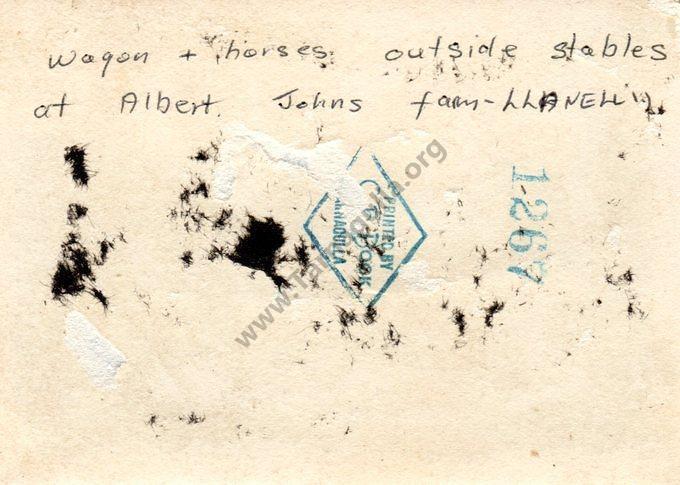 wagon + horses outside stables
at Albert Johns farm - LLANELLY
PRINTED BY
COOK
1267
www.Tarrangolla.org